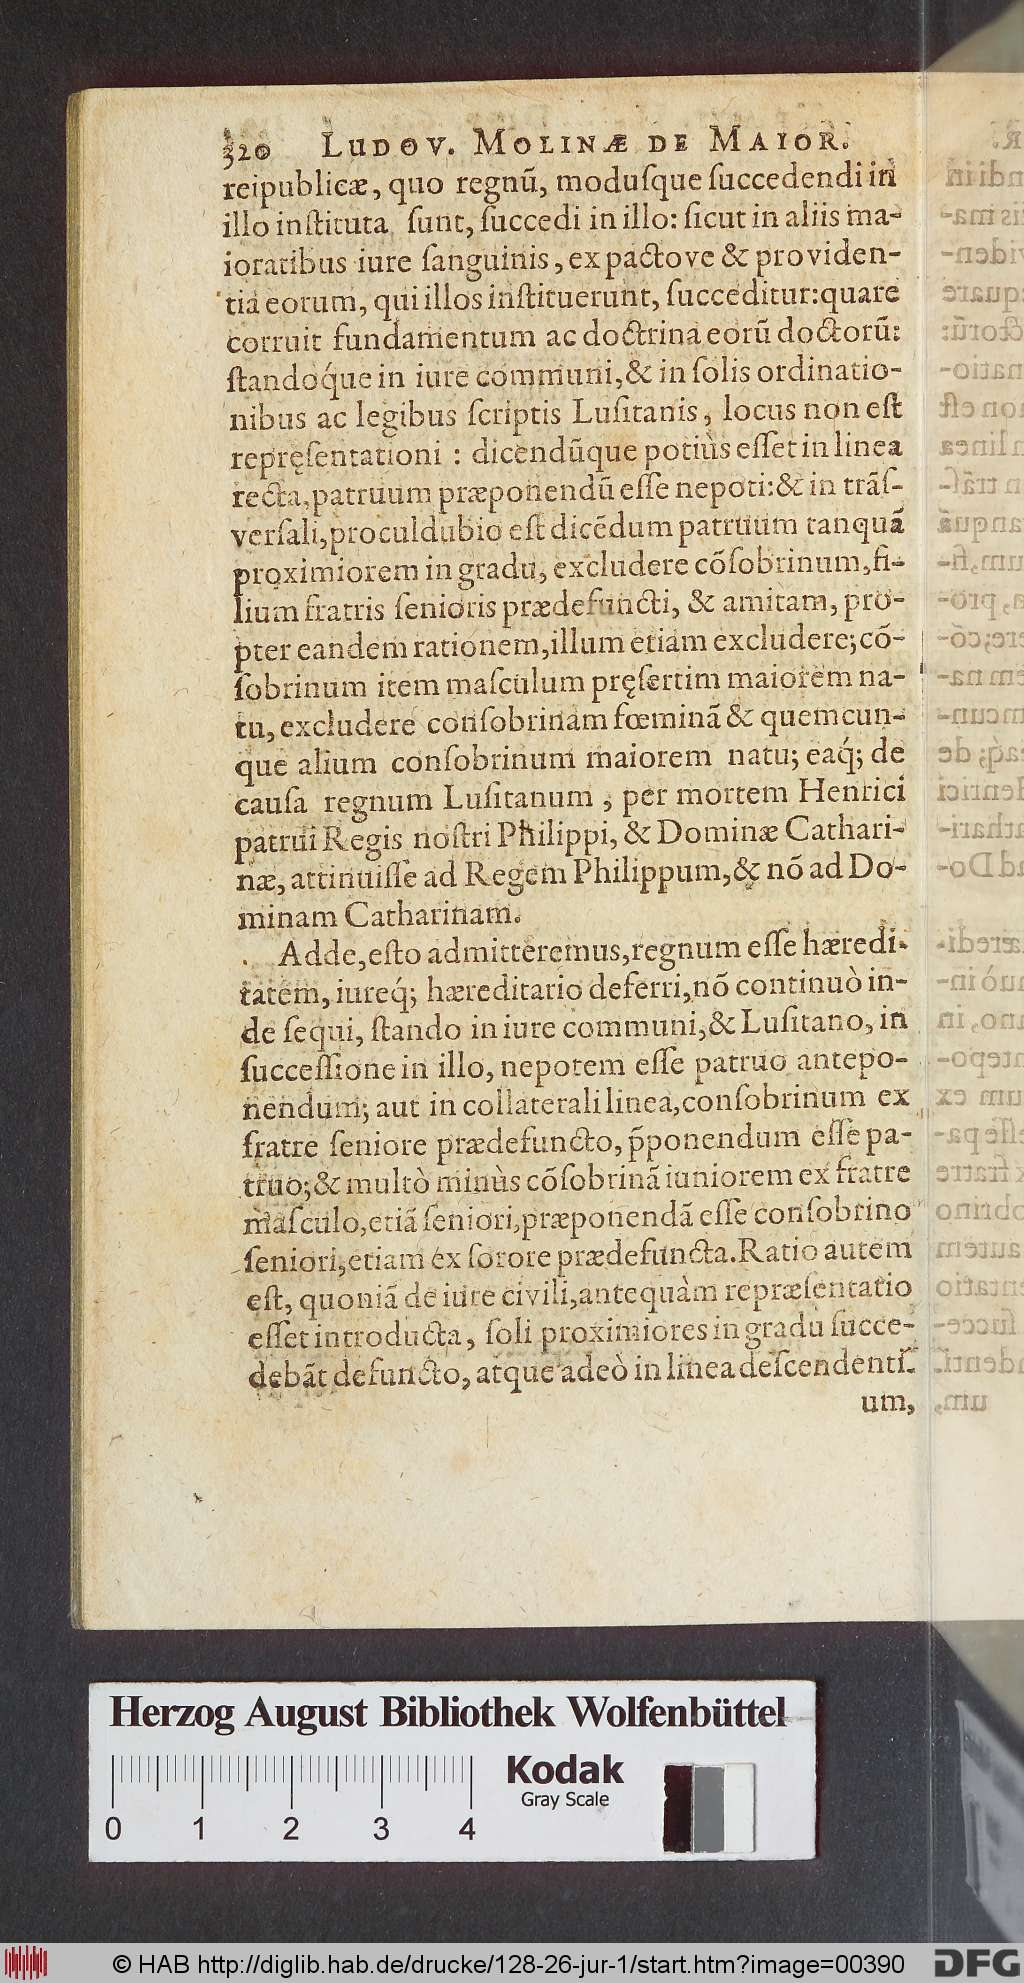 320 LUDOV. MOLINÆ DE MAIOR.
reipublicæ, quo regnũ, moduſque ſuccedendi in
illo inſtituta ſunt, ſuccedi in illo: ſicut in aliis ma-
ioratibus iure ſanguinis, ex pactove & providen-
tia eorum, qui illos inſtituerunt, ſucceditur: quare
corruit fundamentum ac doctrina eorũ doctorũ:
ſtandoq́ue in iure communi, & in ſolis ordinatio-
nibus ac legibus ſcriptis Luſitanis, locus non eſt
repręſentationi : dicendũque potiùs eſſet in linea
recta, patruum præponendũ eſſe nepoti: & in trãſ-
verſali, proculdubio eſt dicẽdum patruum tanquã
proximiorem in gradu, excludere cõſobrinum, fi-
lium fratris ſenioris prædefuncti, & amitam, pro-
pter eandem rationem, illum etiam excludere; cõ-
ſobrinum item maſculum pręſertim maiorem na-
tu, excludere conſobrinam fœminã & quemcun-
que alium conſobrinum maiorem natu; eaq́; de
cauſa regnum Luſitanum, per mortem Henrici
patrui Regis noſtri Philippi, & Dominæ Cathari-
næ, attinuiſſe ad Regem Philippum, & nõ ad Do-
minam Catharinam.
Adde, eſto admitteremus, regnum eſſe hæredi-
tatem, iureq́; hæreditario deferri, nõ continuò in-
de ſequi, ſtando in iure communi, & Luſitano, in
ſucceſſione in illo, nepotem eſſe patruo antepo-
nendum; aut in collaterali linea, conſobrinum ex
fratre ſeniore prædefuncto, p̃ponendum eſſe pa-
truo; & multò minùs cõſobrinã iuniorem ex fratre
maſculo, etiã ſeniori, præponendã eſſe conſobrino
ſeniori, etiam ex ſorore prædefuncta. Ratio autem
eſt, quoniã de iure civili, antequàm repræſentatio
eſſet introducta, ſoli proximiores in gradu ſucce-
debãt defuncto, atque adeò in linea deſcendenti-
um,
Herzog August Bibliothek Wolfenbüttel
Kodak
Gray Scale
0 1 2 3 4
© HAB http://diglib.hab.de/drucke/128-26-jur-1/start.htm?image=00390
DFG